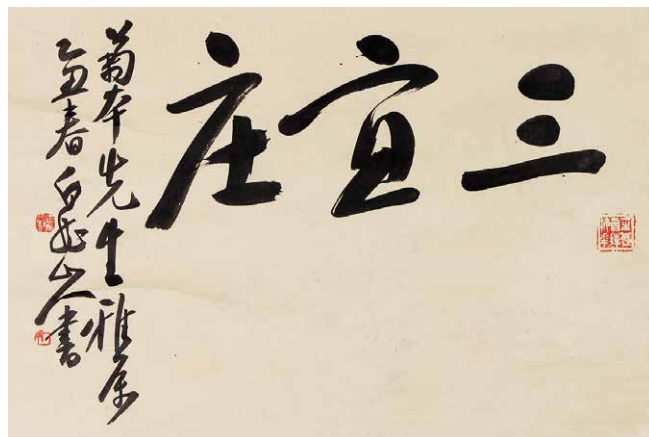 三宜庄
菊本先生雅属
乙丑春白龍山人書